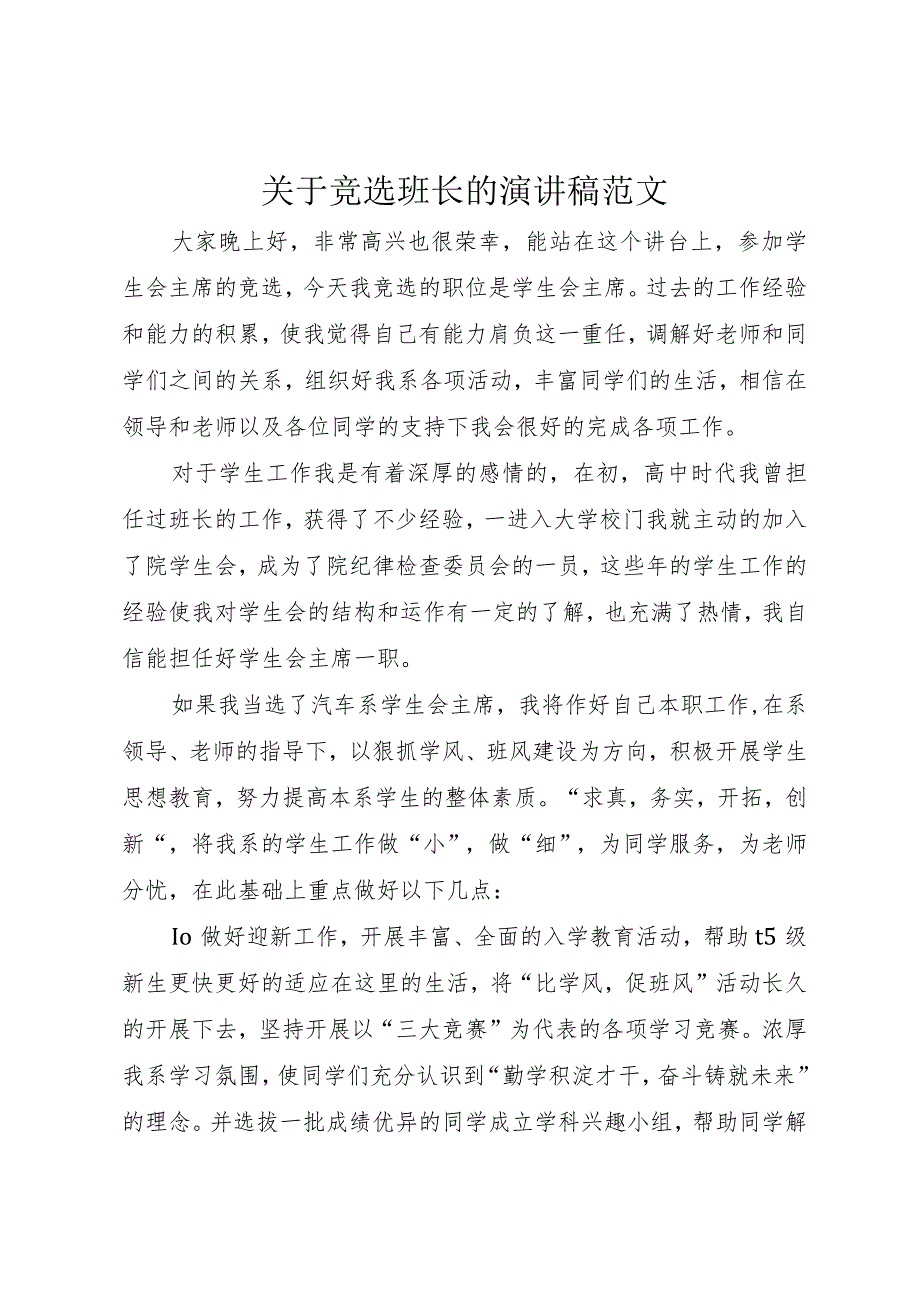 关于竞选班长的演讲稿范文
大家晚上好，非常高兴也很荣幸，能站在这个讲台上，参加学
生会主席的竞选，今天我竞选的职位是学生会主席。过去的工作经验
和能力的积累，使我觉得自己有能力肩负这一重任，调解好老师和同
学们之间的关系，组织好我系各项活动，丰富同学们的生活，相信在
领导和老师以及各位同学的支持下我会很好的完成各项工作。
对于学生工作我是有着深厚的感情的，在初，高中时代我曾担
任过班长的工作，获得了不少经验，一进入大学校门我就主动的加入
了院学生会，成为了院纪律检查委员会的一员，这些年的学生工作的
经验使我对学生会的结构和运作有一定的了解，也充满了热情，我自
信能担任好学生会主席一职。
如果我当选了汽车系学生会主席，我将作好自己本职工作,在系
领导、老师的指导下，以狠抓学风、班风建设为方向，积极开展学生
思想教育，努力提高本系学生的整体素质。“求真，务实，开拓，创
新“，将我系的学生工作做“小”，做“细”，为同学服务，为老师
分忧，在此基础上重点做好以下几点：
Io 做好迎新工作，开展丰富、全面的入学教育活动，帮助 t5 级
新生更快更好的适应在这里的生活，将“比学风，促班风”活动长久
的开展下去，坚持开展以“三大竞赛”为代表的各项学习竞赛。浓厚
我系学习氛围，使同学们充分认识到“勤学积淀才干，奋斗铸就未来”
的理念。并选拔一批成绩优异的同学成立学科兴趣小组，帮助同学解